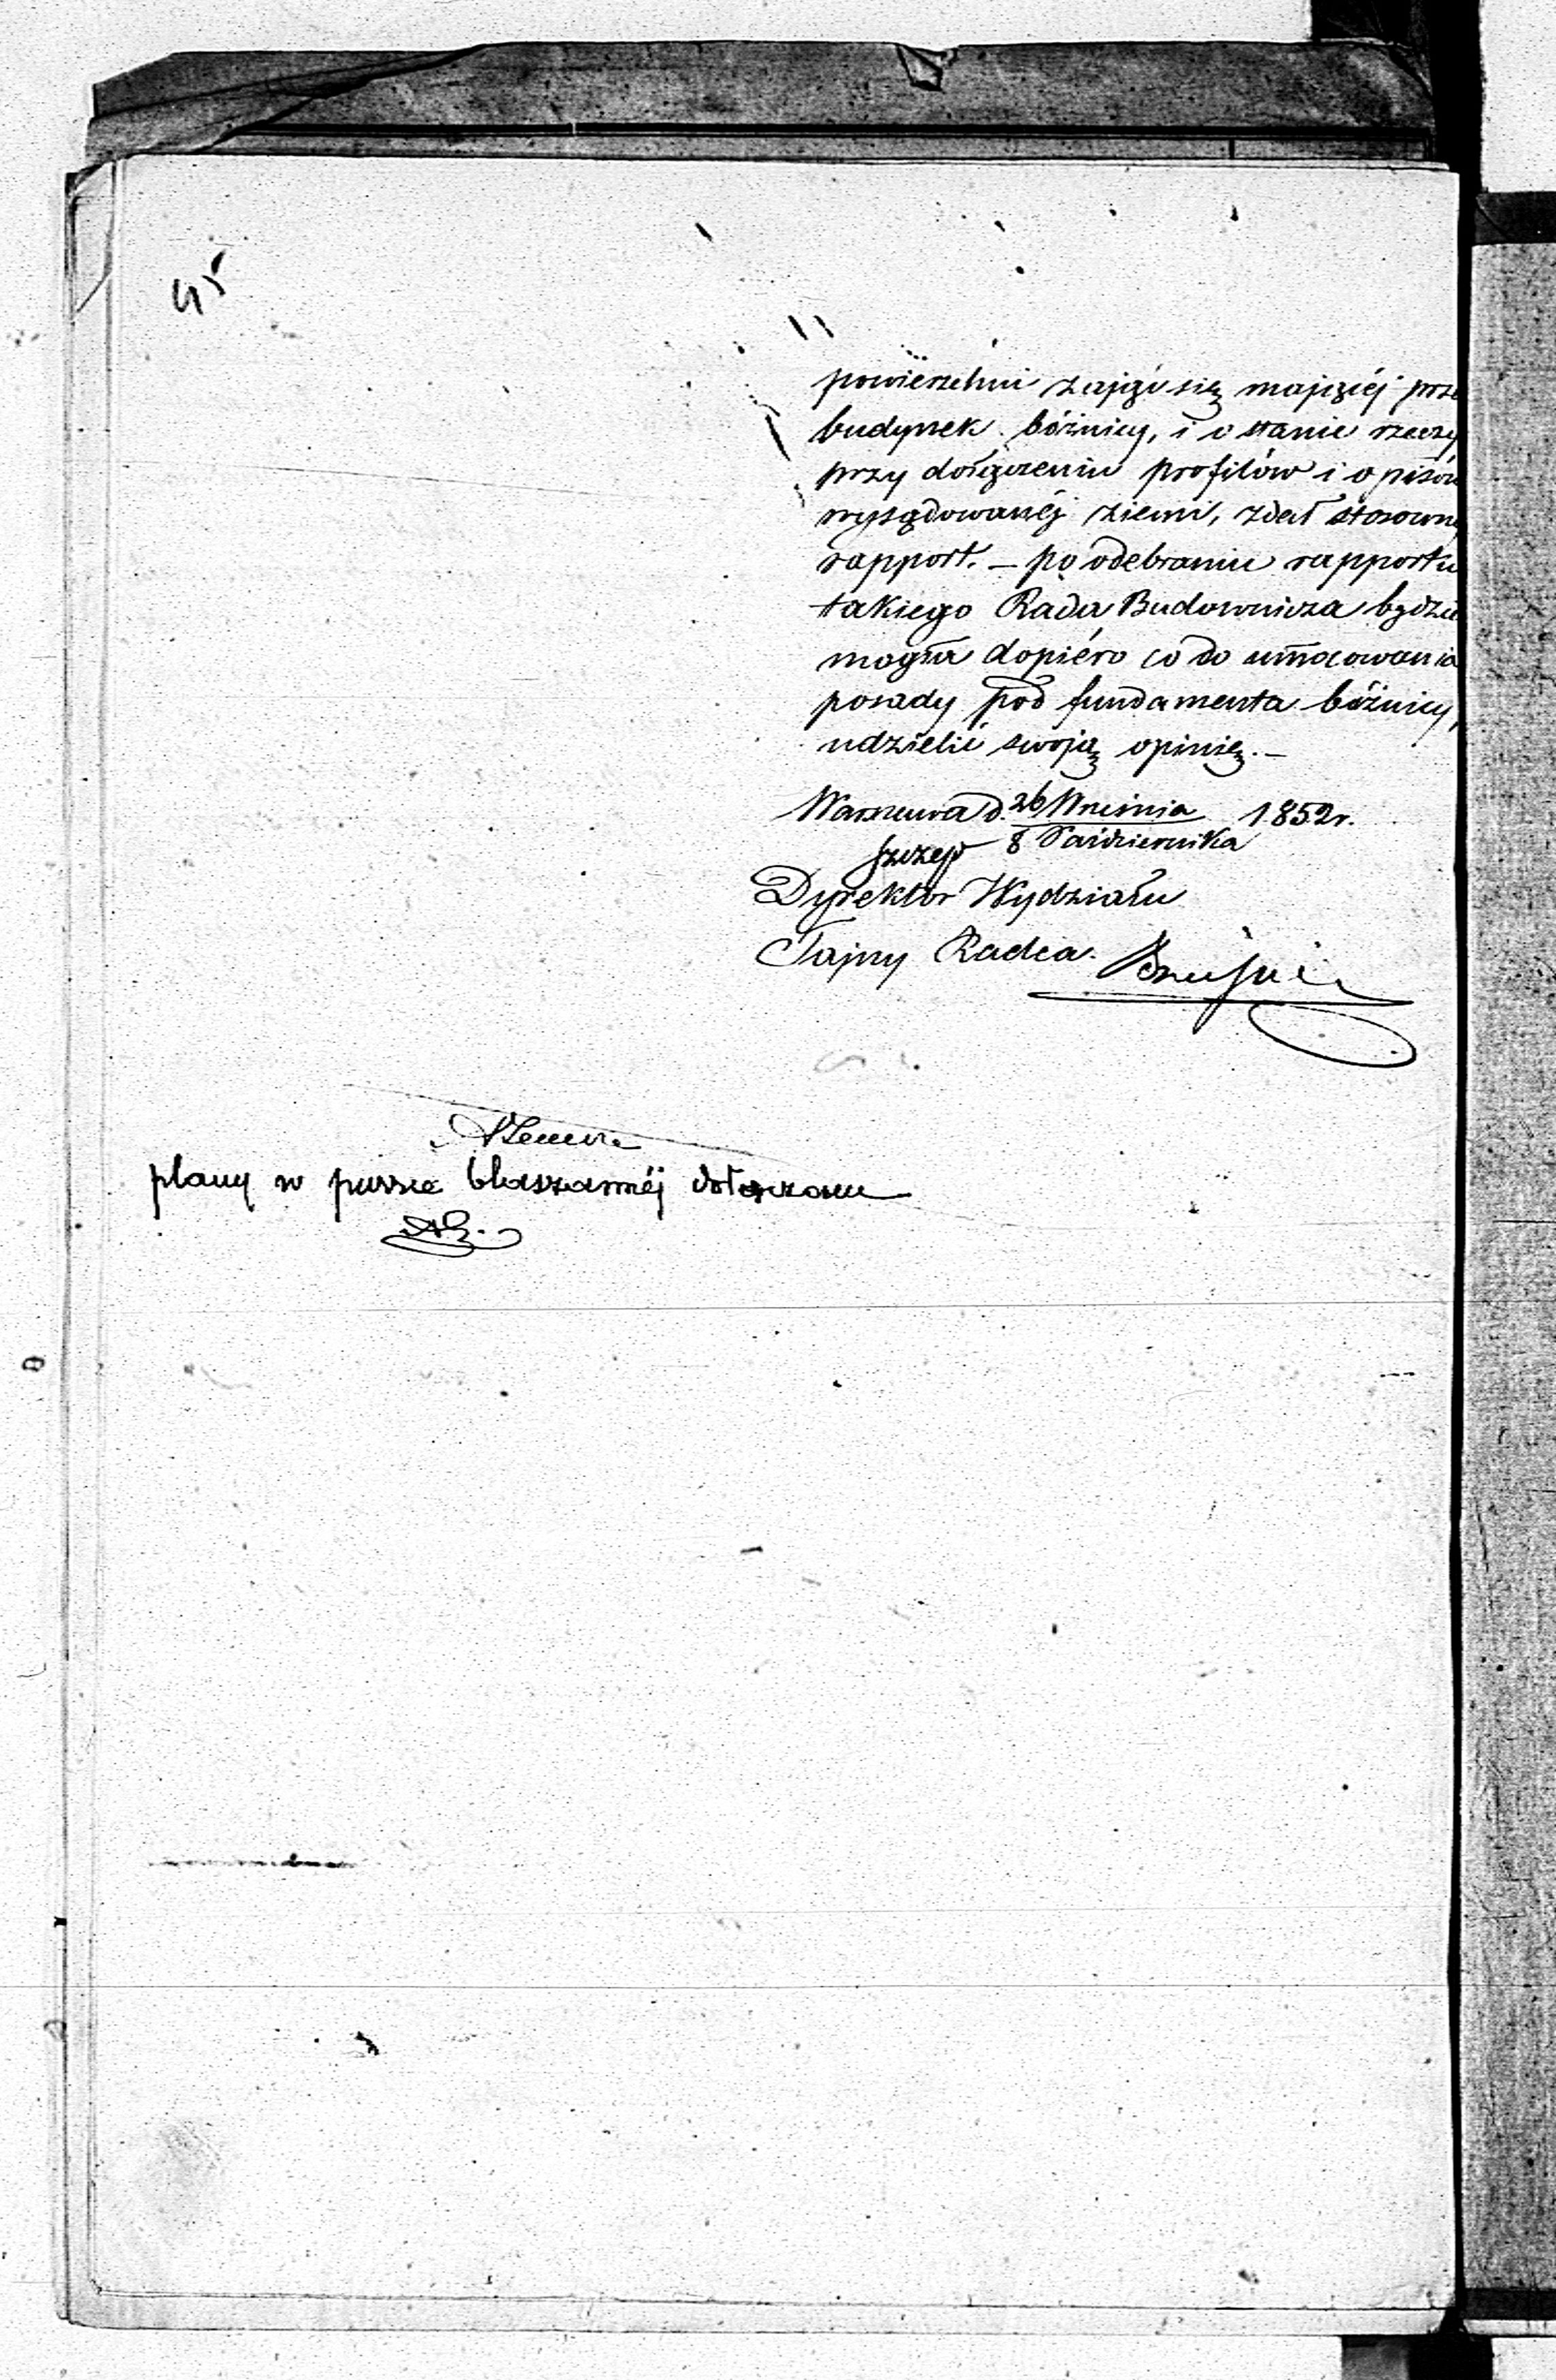 45
powiérzchni zająć się mającéj prze
budynek bóżnicy, i o stanie rzeczy
przy dołączeniu profilów i opisów
wysądowanéj ziemi, zdał stosowny
rapport. – po odebraniu rapportu
takiego Rada Budownicza będzie
mogła dopiéro co do umocowania
posady pod fundamenta bóżnicy,
udzielić swoją opinię. –
Warszawa d. 26 Września 1852 r.
8 Października
Dyrektor Wydziału
Tajny Radca.
plany w puszce blaszannéj dołączone